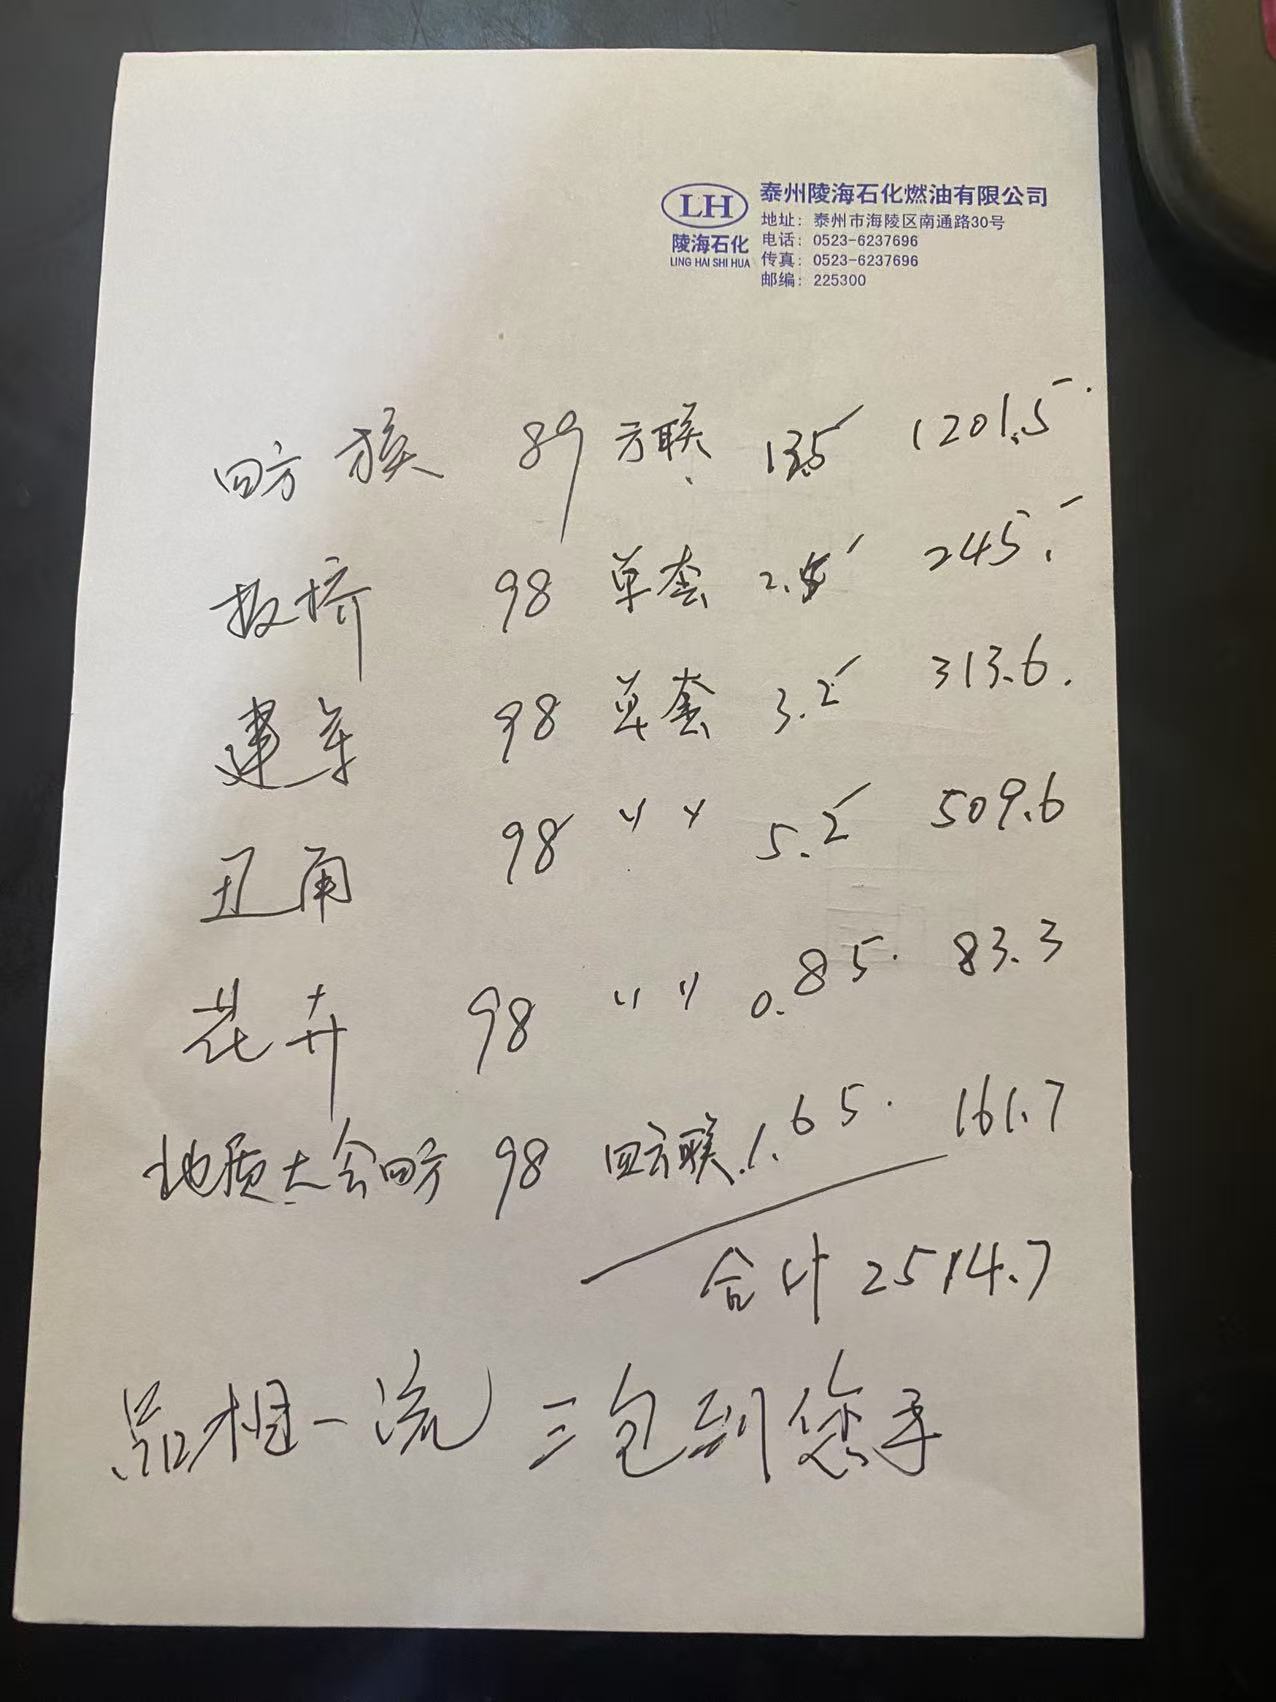 LH
陵海石化
LING HAI SHI HUA
泰州陵海石化燃油有限公司
地址：泰州市海陵区南通路30号
电话：0523-6237696
传真：0523-6237696
邮编：225300
四方族 89 方联 13.5 1201.5
板桥 98 单套 2.5 245.
建军 98 单套 3.2 313.6.
丑角 98 〃 〃 5.2 509.6
花卉 98 〃 〃 0.85. 83.3
地质大会四方 98 四方联 1.65. 161.7
合计 2514.7
品相一流 三包到您手